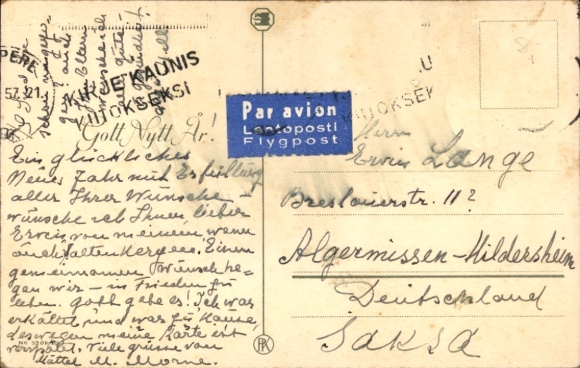 PERE
57. 21
KIRJE KAUNIS
KIITOKSEKSI
Par avion
Lentoposti
Flygpost
Gott Nytt År!
Ein glückliches
Neues Jahr mit Erfüllung
aller Ihrer Wünsche –
wünsche ich Ihnen lieber
Erwin von meinem wenn
auch alten Herzen. Einen
gemeinsamen Wunsch he-
gen wir – in Frieden zu
leben. Gott gebe es! Ich war
erkältet und war zu Hause,
deswegen meine Karte ist
verspätet. Viele Grüsse von
M. Morne.
Herrn
Erwin Lange
Breslauerstr. 11?
Algermissen-Hildersheim
Deutschland
SAKSA